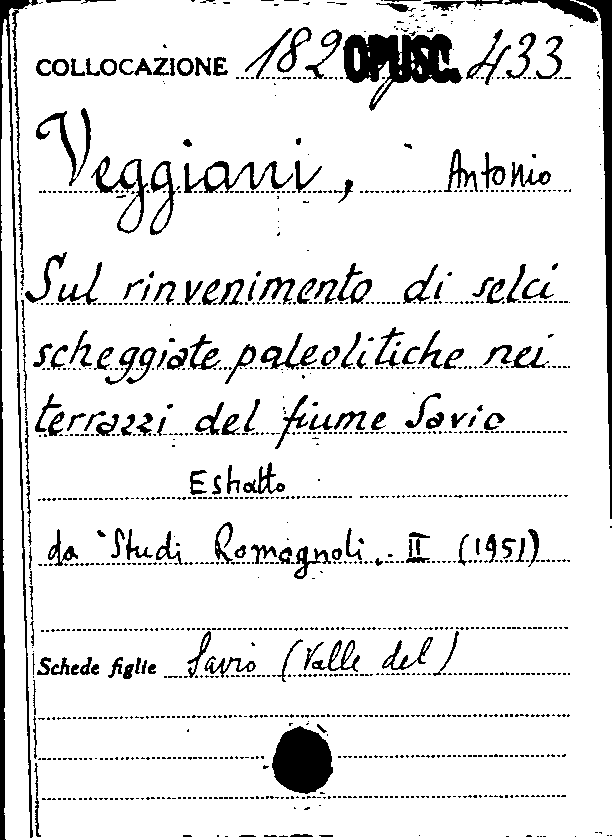 COLLOCAZIONE 182 OPUSC. 433
Veggiani, Antonio
Sul rinvenimento di selci
scheggiate paleolitiche nei
terrazzi del fiume Savio
Estratto
da "Studi Romagnoli" II (1951)
Schede figlie Savio (Valle del)